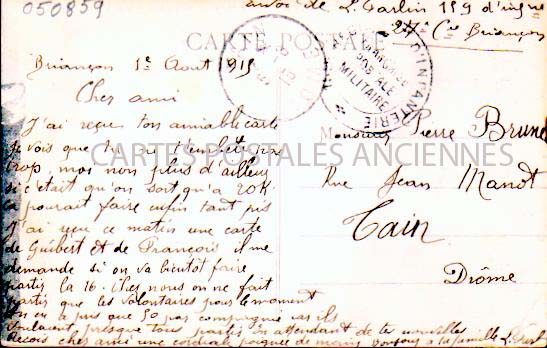 050859
envoi de L. Tarlin 159 d'inf
27e Cie Briançon
CARTE POSTALE
D'INFANTERIE
POSTALE
MILITAIRE
Briançon 1e Aout 1915
Cher ami
J'ai reçu ton aimable carte
je vois que tu ne t'embête pas
trop, moi non plus d'ailleurs
si c'était qu'on sort qu'a 20h
ça pourait faire enfin tant pis
J'ai reçu ce matin une carte
de Guibert et de François il me
demande si on va bientôt faire
partir la 16. chez nous on ne fait
partir que les volontaires pour le moment
On en a pris que 50 par compagnie
voulaient presque tous partir en attendant de tes nouvelles
Reçois cher ami une cordiale poignée de mains Bonjour à ta famille
Monsieur Pierre Brunel
Rue Jean Manot
Tain
Drôme
CARTES POSTALES ANCIENNES